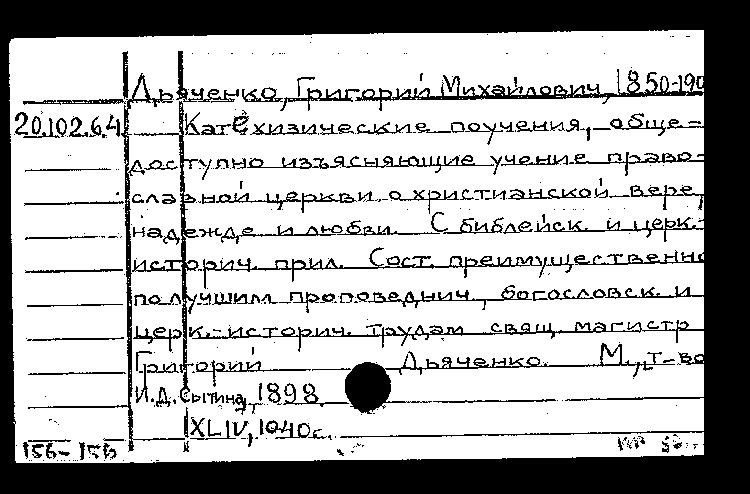 Дьяченко, Григорий Михайлович, 1850-190
20.102.6.4 Катехизические поучения, обще=
доступно изъясняющие учение право=
славной церкви о христианской вере,
надежде и любви. С библейск. и церк.-
историч. прил. Сост. преимущественно
по лучшим проповеднич., богословск. и
церк.-историч. трудам свящ. магистр
Григорий Дьяченко. М., т-во
И.Д. Сытина, 1898.
XLIV, 1040 с.
156-156